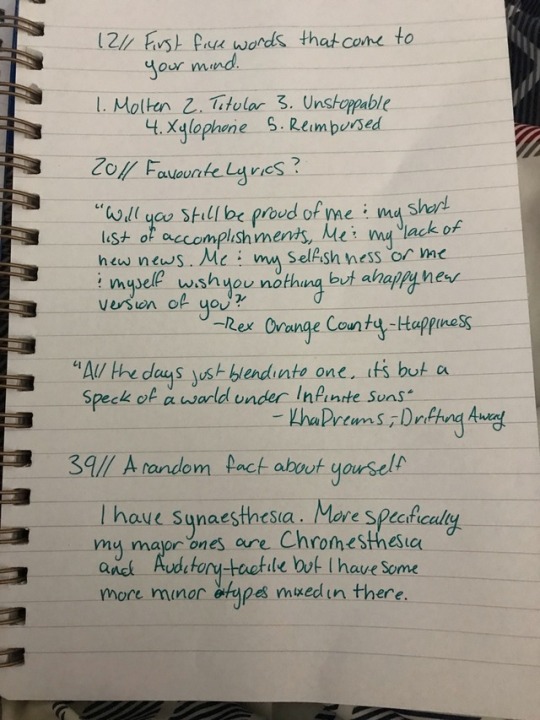 12// First five words that come to
your mind.
1. Molten 2. Titular 3. Unstoppable
4. Xylophone 5. Reimbursed
20// Favourite Lyrics?
"Will you still be proud of me & my short
list of accomplishments, Me & my lack of
new news. Me & my selfishness or me
& myself wish you nothing but a happy new
version of you?"
-Rex Orange County - Happiness
"All the days just blend into one. it's but a
speck of a world under Infinite suns"
- KhaiDreams ; Drifting Away
39// A random fact about yourself
I have synaesthesia. More specifically
my major ones are Chromesthesia
and Auditory-tactile but I have some
more minor types mixed in there.